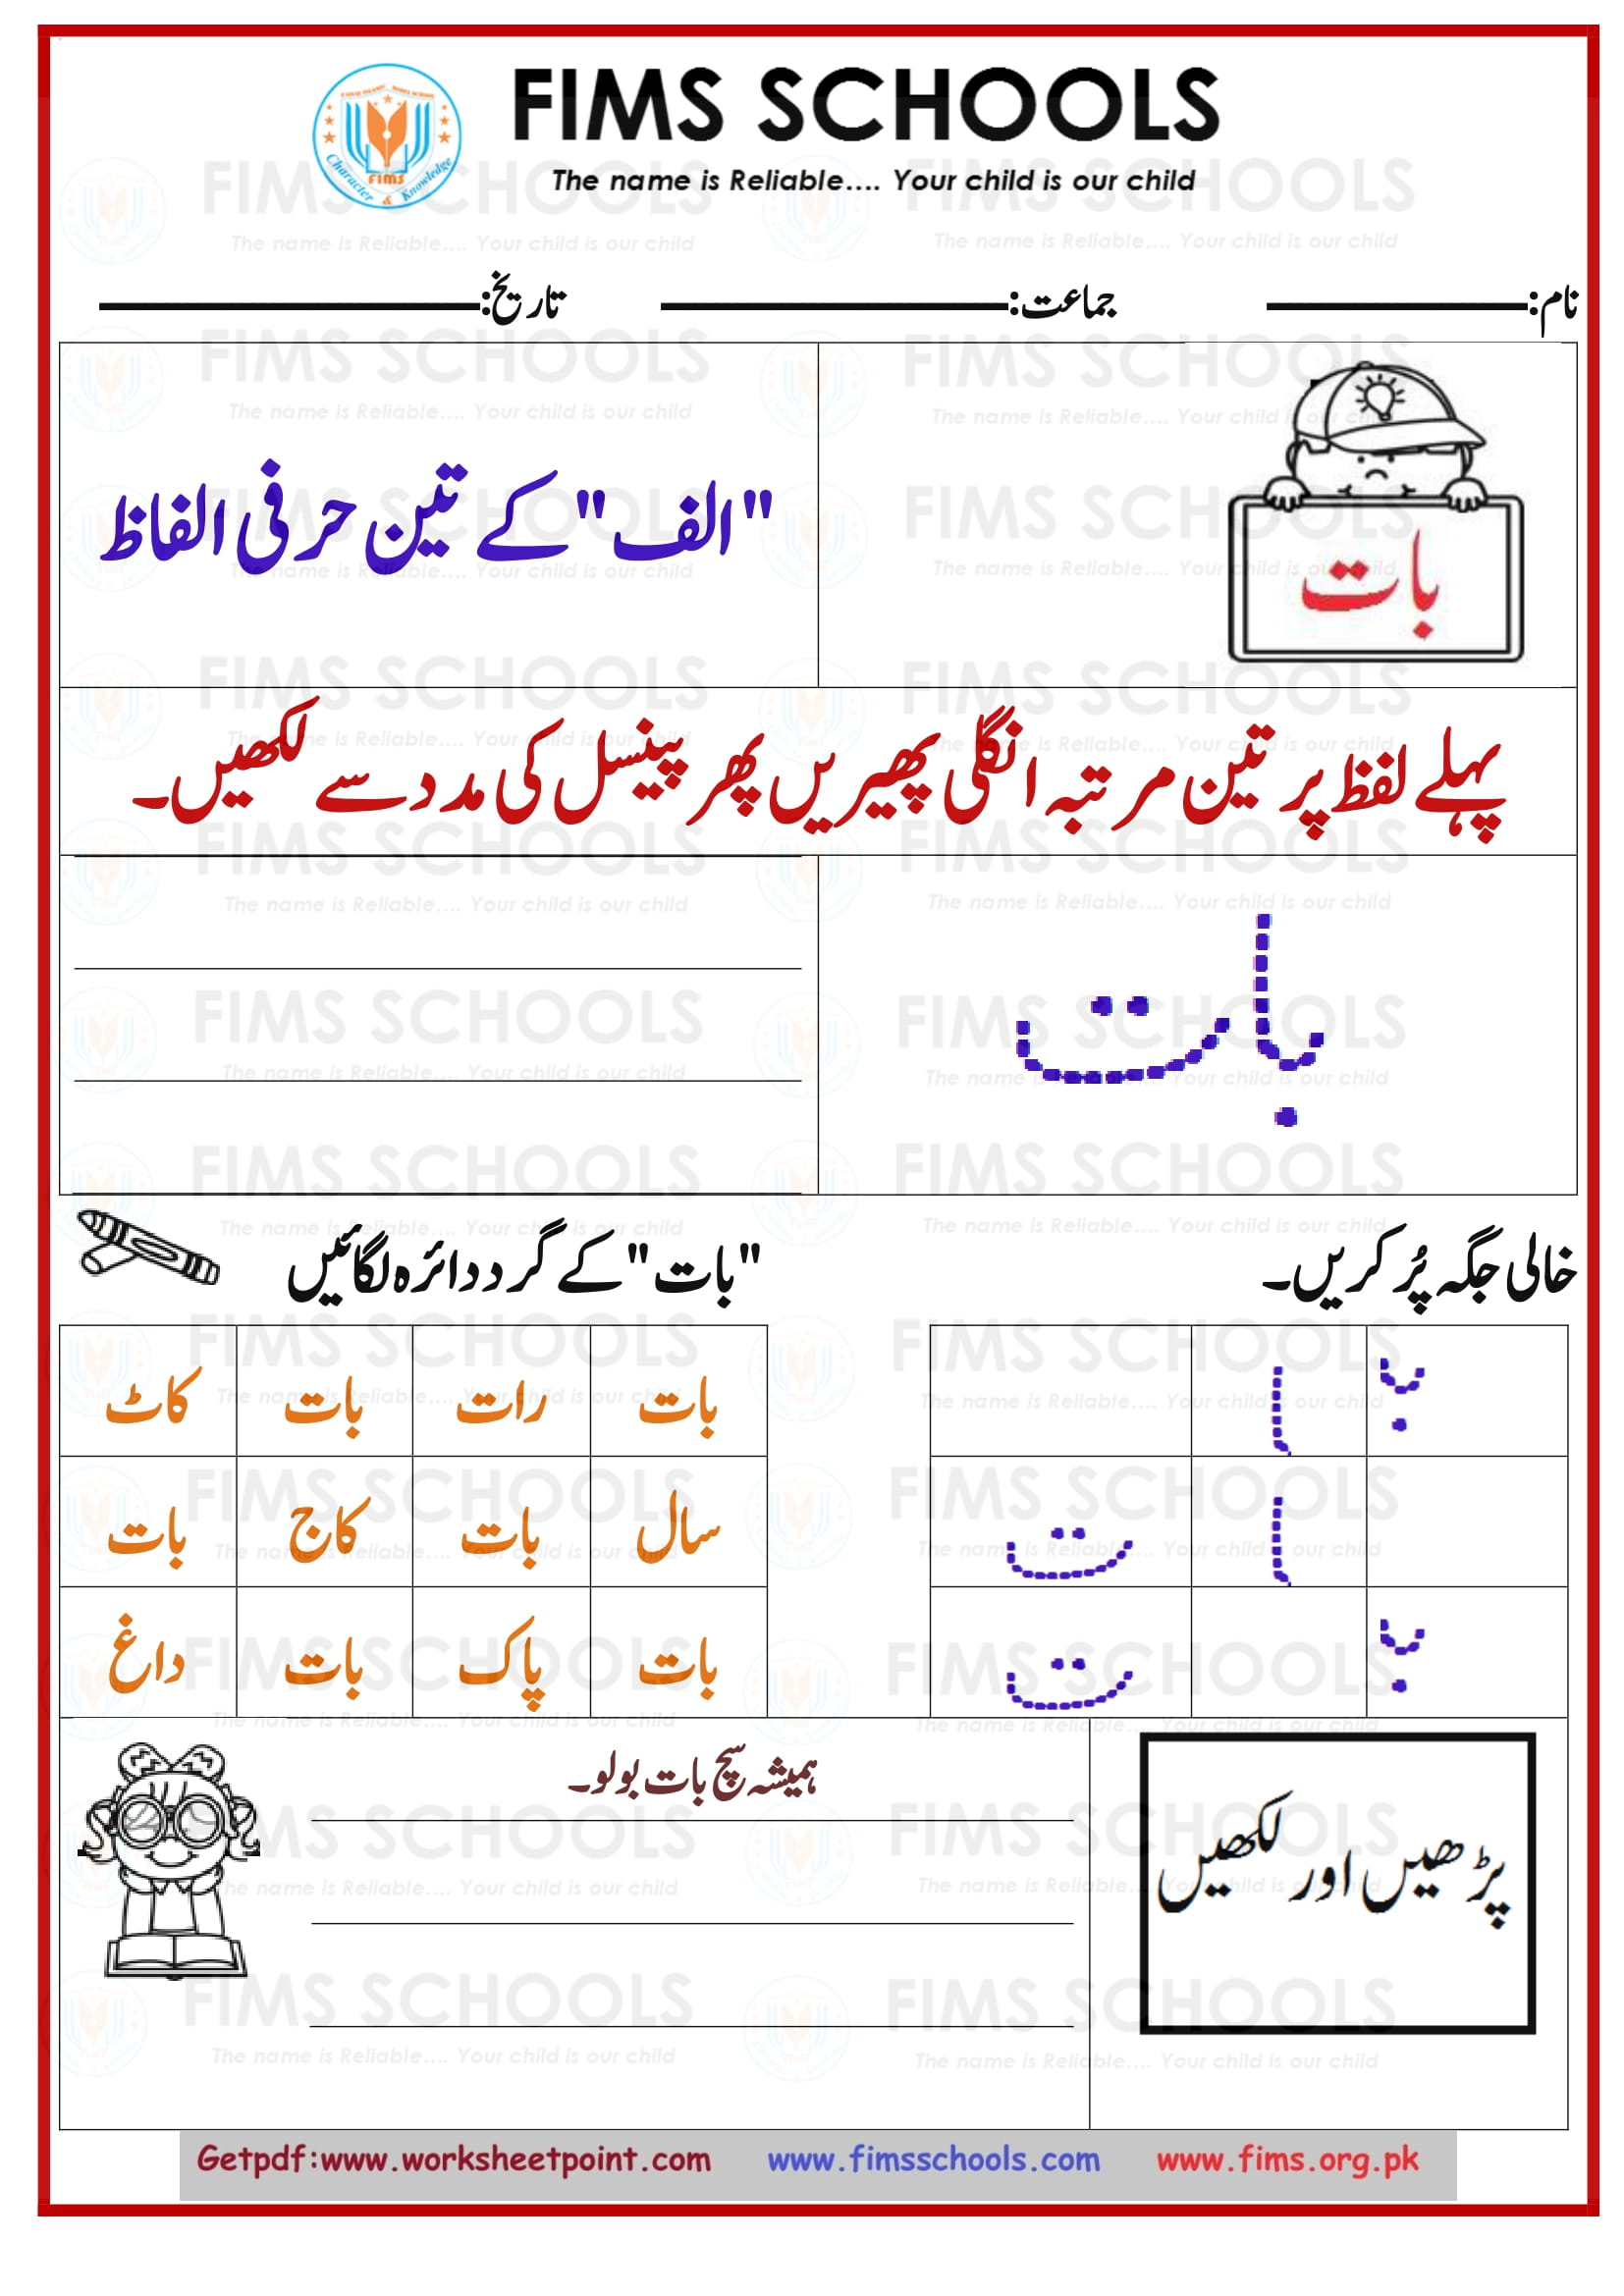 FIMS SCHOOLS
The name is Reliable.... Your child is our child
FIMS
Character & Knowledge
نام: جماعت: تاریخ:
بات
"الف" کے تین حرفی الفاظ
پہلے لفظ پر تین مرتبہ انگلی پھیریں پھر پینسل کی مدد سے لکھیں۔
بات
خالی جگہ پُر کریں۔
بـ ـا
ـا ت
بـ ت
"بات" کے گرد دائرہ لگائیں
بات رات بات کاٹ
سال بات کاج بات
بات پاک بات داغ
پڑھیں اور لکھیں
ہمیشہ سچ بات بولو۔
Getpdf:www.worksheetpoint.com www.fimsschools.com www.fims.org.pk